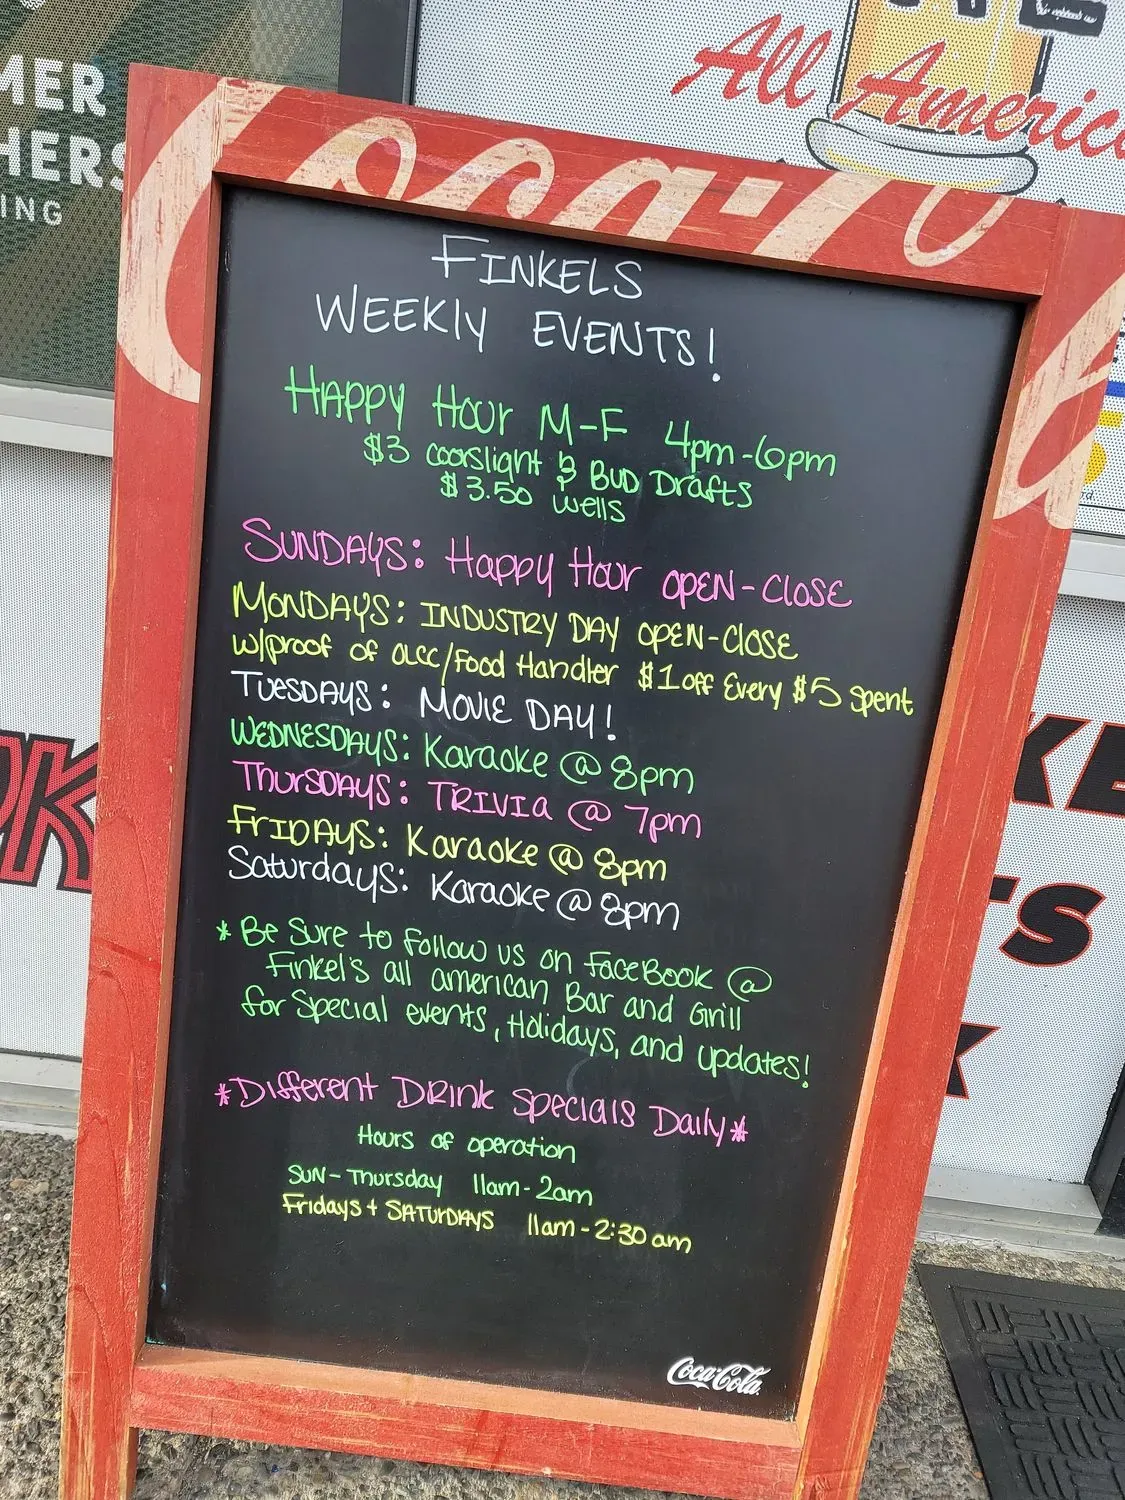 MER
HERS
ING
All America
Coca-Co
FINKELS
WEEKLY EVENTS!
HAPPY HOUR M-F 4pm-6pm
$3 coorslight & BUD DRAFTS
$3.50 wells
SUNDAYS: HAPPY HOUR OPEN-CLOSE
MONDAYS: INDUSTRY DAY OPEN-CLOSE
w/proof of OLCC/Food Handler $1 off Every $5 spent
TUESDAYS: MOVIE DAY!
WEDNESDAYS: Karaoke @ 8pm
THURSDAYS: TRIVIA @ 7pm
FRIDAYS: Karaoke @ 8pm
Saturdays: Karaoke @ 8pm
*Be Sure to follow us on FaceBook @
Finkel's all american Bar and Grill
for Special events, Holidays, and updates!
*Different DRink Specials Daily*
Hours of operation
SUN-Thursday 11am-2am
Fridays + SATURDAYS 11am-2:30am
Coca-Cola